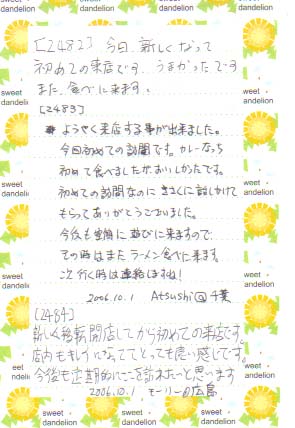 [2482] 今日、新しくなって
初めての来店です。うまかったです
また、食べに来ます。
[2483]
ようやく来店する事が出来ました。
今回初めての訪問です。カレーなっち
初めて食べましたがおいしかったです。
初めての訪問なのに きさくに話しかけて
もらってありがとうございました。
今後も 遊びに来ますので
その時はまた ラーメン食べに来ます。
次行く時は連絡しますね!
2006.10.1 Atsushi@千葉
[2484]
新しく移転開店してから初めての来店です。
店内もキレイになっててとっても良い感じです。
今後も定期的にここを訪れたいと思います
2006.10.1 モーリー@広島
sweet dandelion
sweet dandelion
sweet dandelion
sweet dandelion
sweet dandelion
sweet dandelion
sweet dandelion
sweet dandelion
sweet dandelion